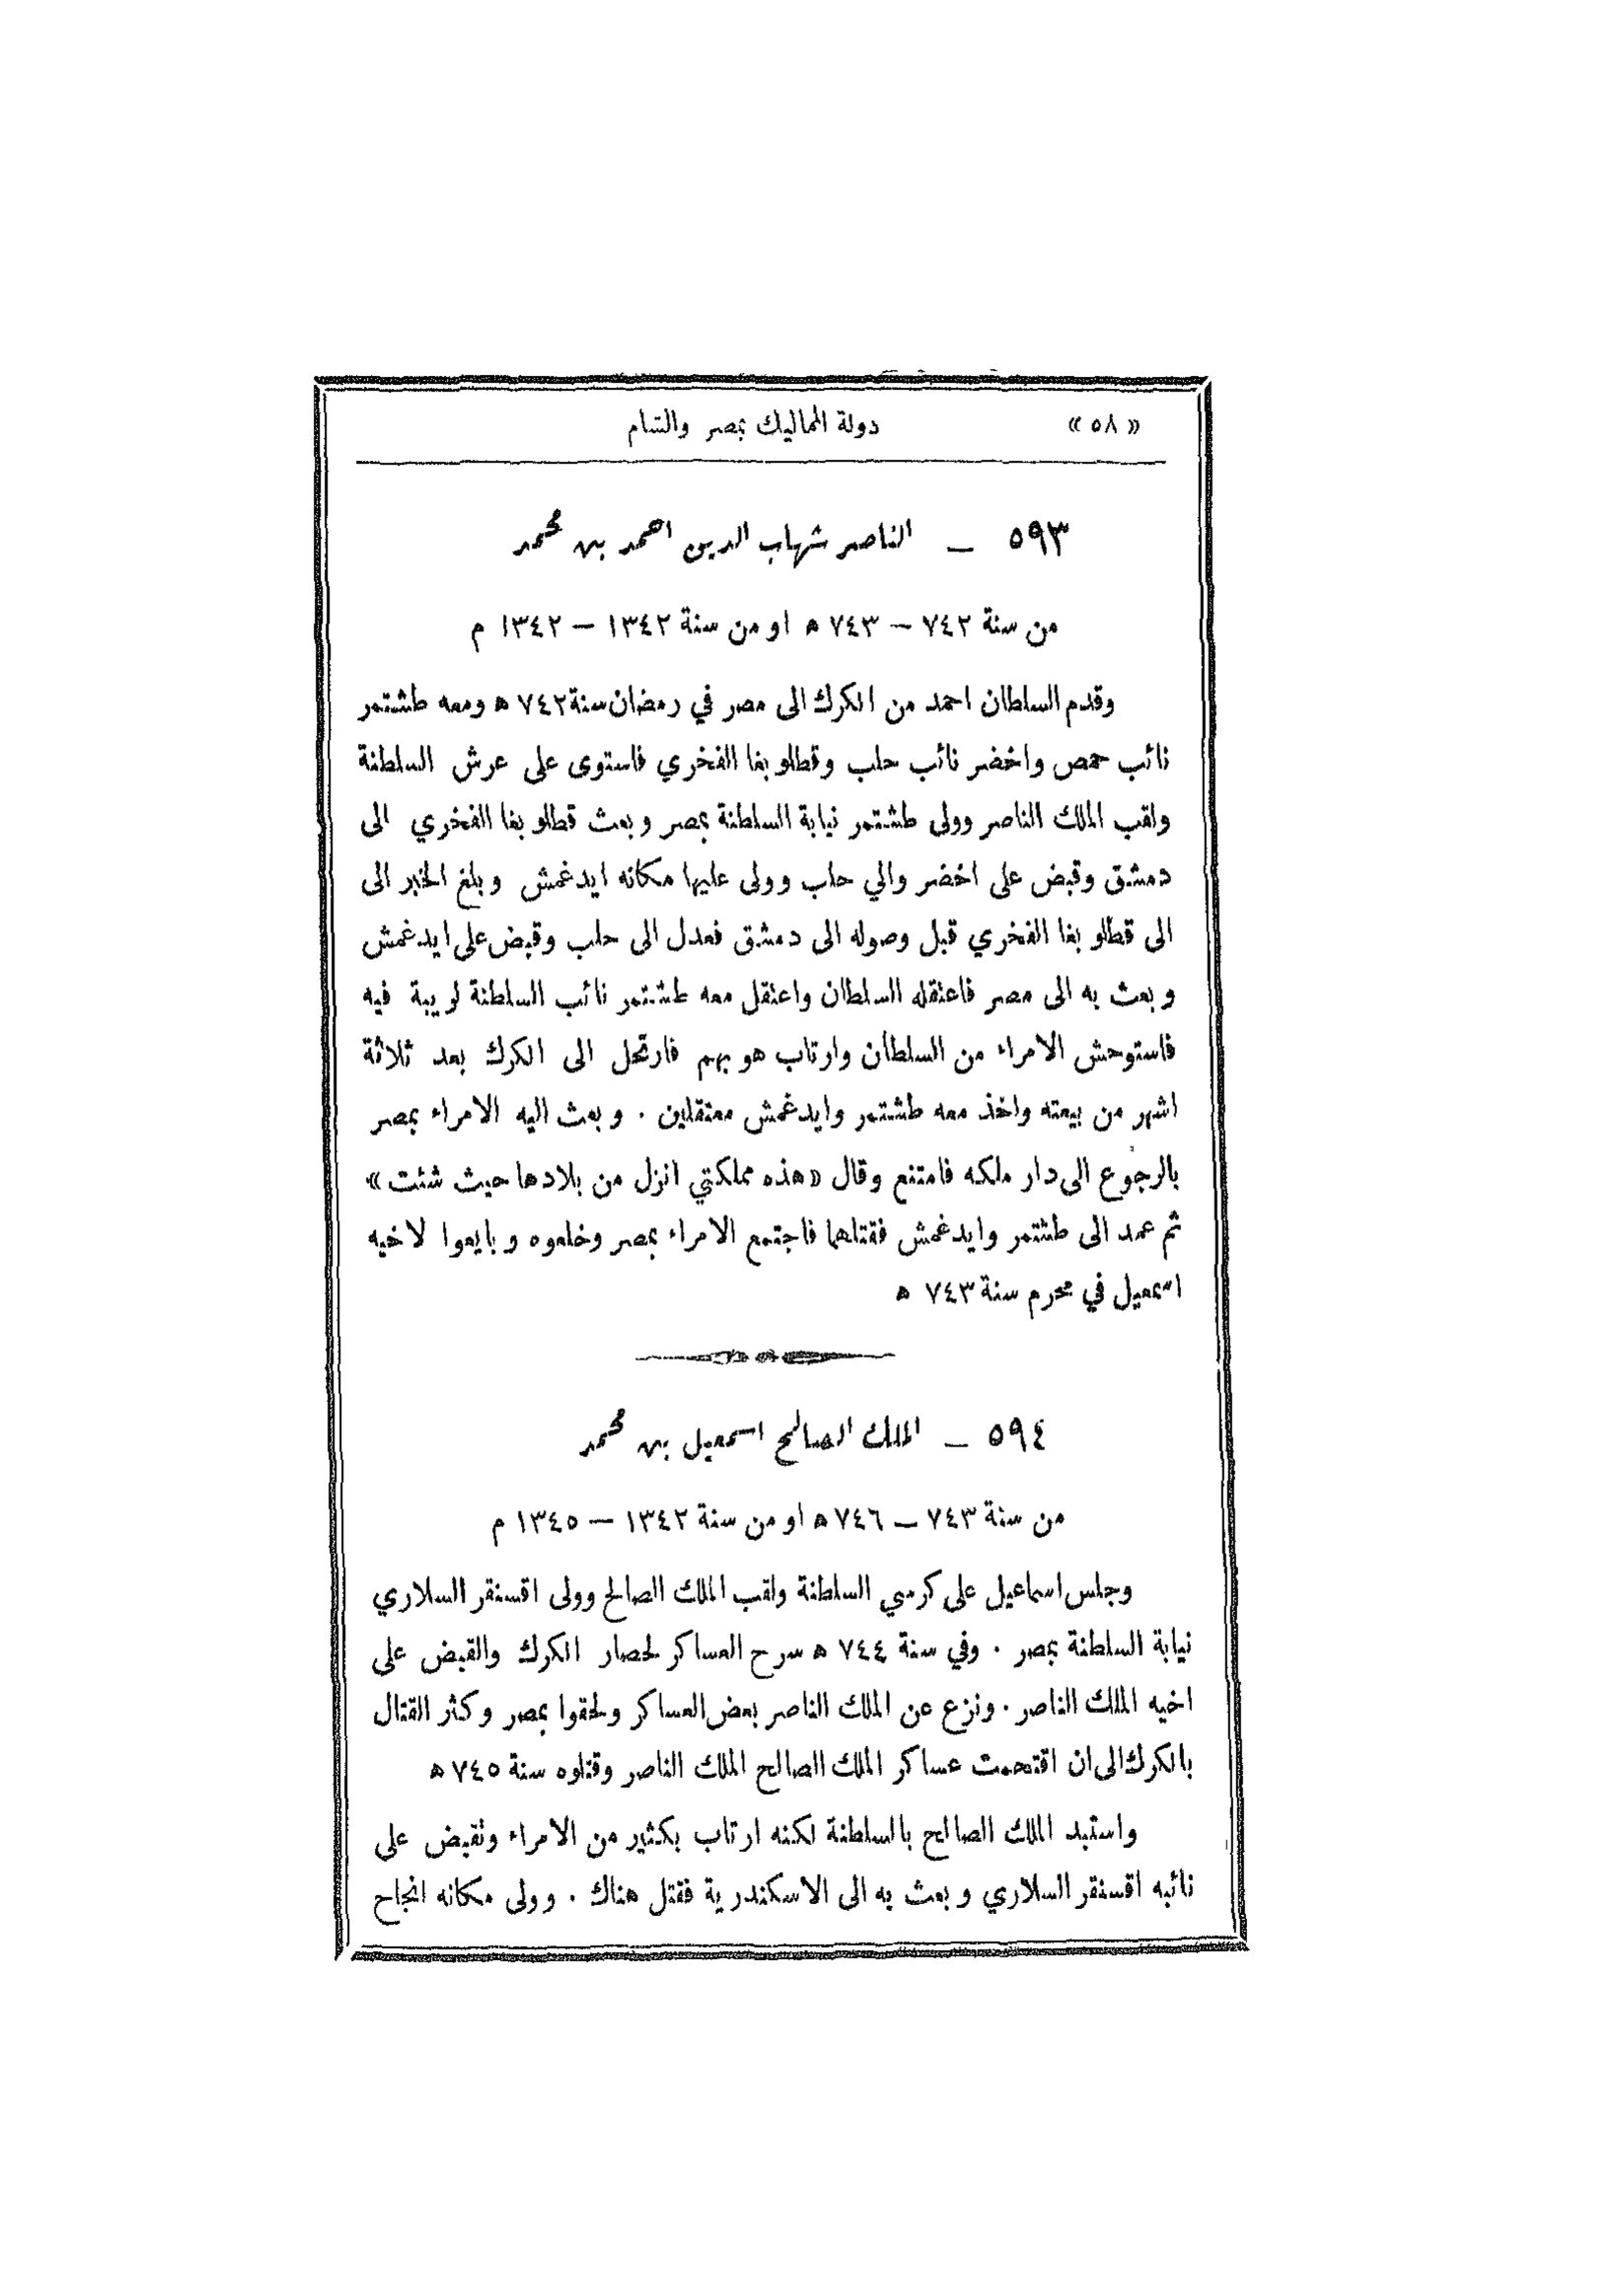 «٥٨» دولة المماليك بمصر والشام
٥٩٣ — الناصر شهاب الدين احمد بن محمد
من سنة ٧٤٢ – ٧٤٣ ه او من سنة ١٣٤٢ – ١٣٤٢ م
وقدم السلطان احمد من الكرك الى مصر في رمضان سنة ٧٤٢ ه ومعه طشتمر
نائب حمص واخضر نائب حلب وقطلو بغا الفخري فاستوى على عرش السلطنة
ولقب الملك الناصر وولى طشتمر نيابة السلطنة بمصر وبعث قطلو بغا الفخري الى
دمشق وقبض على اخضر والي حلب وولى عليها مكانه ايدغمش وبلغ الخبر الى
الى قطلو بغا الفخري قبل وصوله الى دمشق فعدل الى حلب وقبض على ايدغمش
وبعث به الى مصر فاعتقله السلطان واعتقل معه طشتمر نائب السلطنة لريبة فيه
فاستوحش الامراء من السلطان وارتاب هو بهم فارتحل الى الكرك بعد ثلاثة
اشهر من بيعته واخذ معه طشتمر وايدغمش معتقلين . وبعث اليه الامراء بمصر
بالرجوع الى دار ملكه فامتنع وقال «هذه مملكتي انزل من بلادها حيث شئت»
ثم عمد الى طشتمر وايدغمش فقتلهما فاجتمع الامراء بمصر وخلعوه وبايعوا لاخيه
اسمعيل في محرم سنة ٧٤٣ ه
٥٩٤ — الملك الصالح اسمعيل بن محمد
من سنة ٧٤٣ – ٧٤٦ ه او من سنة ١٣٤٢ – ١٣٤٥ م
وجلس اسماعيل على كرسي السلطنة ولقب الملك الصالح وولى اقسنقر السلاري
نيابة السلطنة بمصر . وفي سنة ٧٤٤ ه سرح العساكر لحصار الكرك والقبض على
اخيه الملك الناصر . ونزع عن الملك الناصر بعض العساكر ولحقوا بمصر وكثر القتال
بالكرك الى ان اقتحمت عساكر الملك الصالح الملك الناصر وقتلوه سنة ٧٤٥ ه
واستبد الملك الصالح بالسلطنة لكنه ارتاب بكثير من الامراء ونقبض على
نائبه اقسنقر السلاري وبعث به الى الاسكندرية فقتل هناك . وولى مكانه انجاح